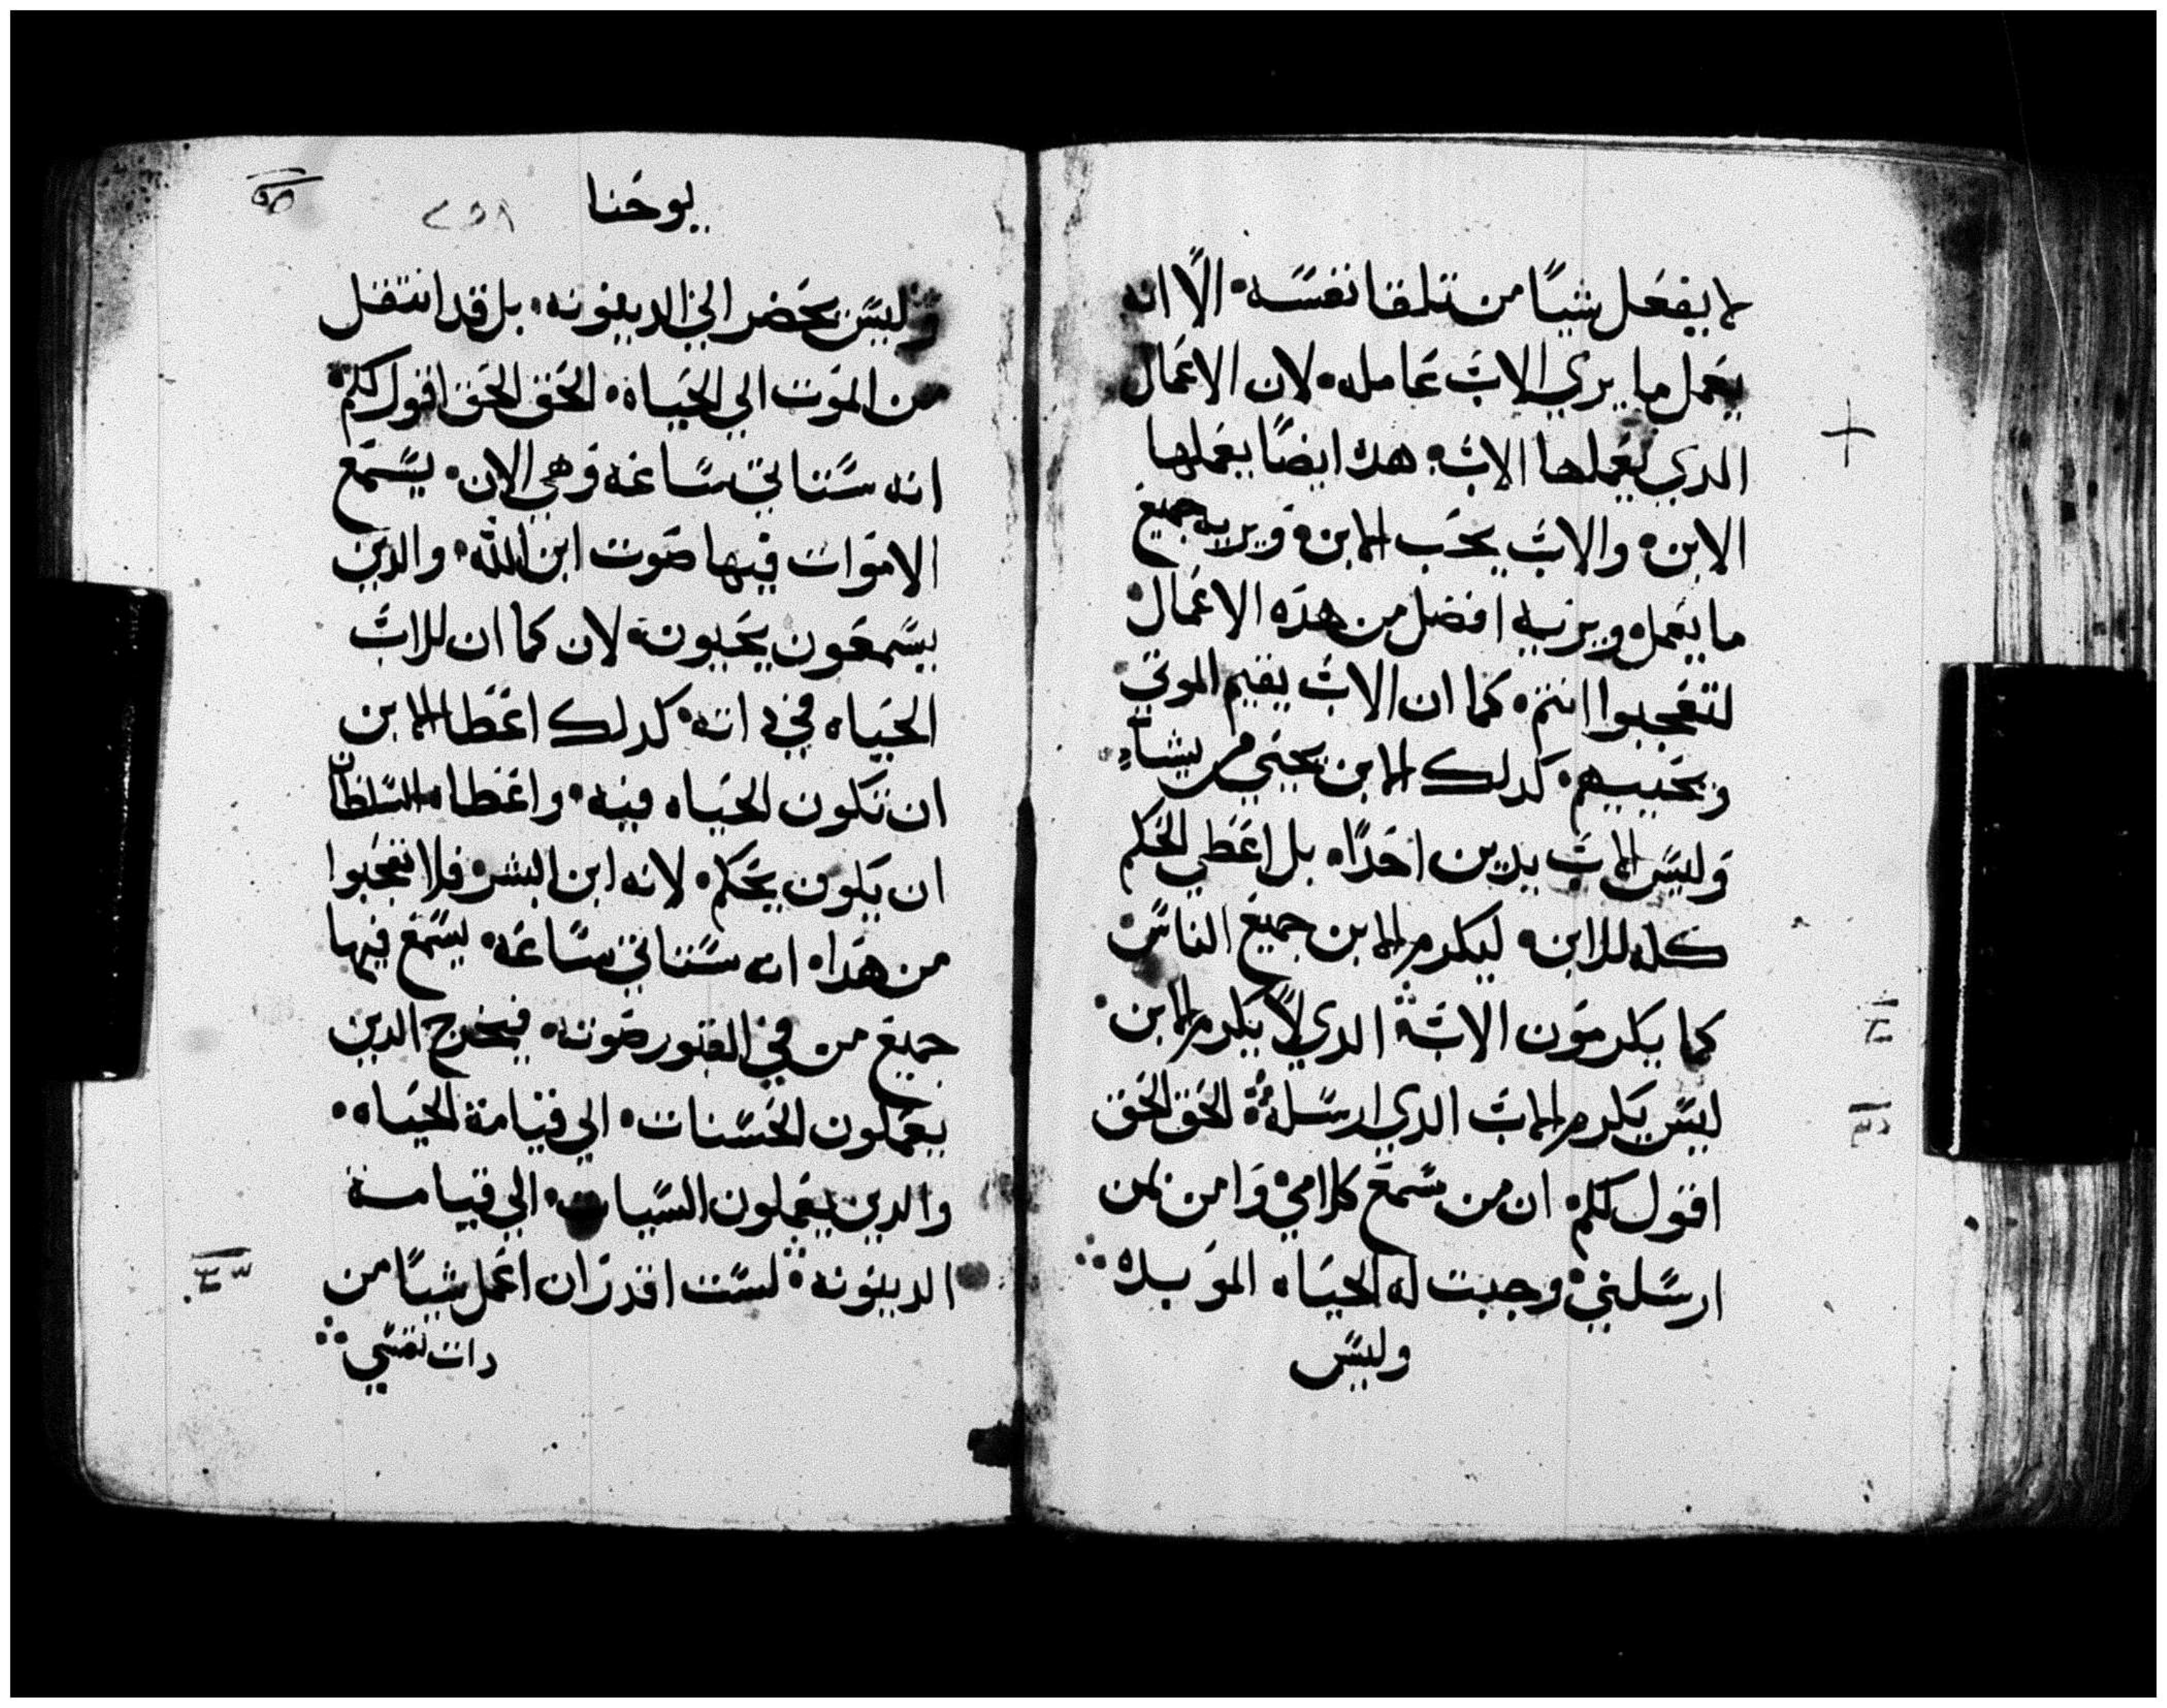 لا يفعل شيًا من تلقا نفسه الّا انه
يعمل ما يري الاب عامله لان الاعمال
الدي يعملها الاب هده ايضًا يعملها
الابن والاب يحب الابن ويريه جميع
ما يعمل ويريه افضل من هده الاعمال
لتعجبوا انتم كما ان الاب يقيم الموتي
ويحييهم كدلك الابن يحيي من يشا
وليس الاب يدين احدًا بل اعطي الحكم
كله للابن ليكرم الابن جميع الناس
كما يكرمون الاب الدي لا يكرم الابن
ليس يكرم الاب الدي ارسله الحق الحق
اقول لكم ان من سمع كلامي وامن بمن
ارسلني وجبت له الحياه الموبده
وليس
يوحنا
٢٥١
وليس يحضر الي الدينونه بل قد انتقل
من الموت الي الحياه الحق الحق اقول لكم
انه ستاتي ساعه وهي الان يسمع
الاموات فيها صوت ابن الله والدين
يسمعون يحيون لان كما ان للاب
الحياه في داته كدلك اعطا الابن
ان تكون الحياه فيه واعطاه السلطان
ان يكون يحكم لانه ابن البشر فلا تعجبوا
من هدا انه ستاتي ساعه يسمع فيها
جميع من في القبور صوته فيخرج الدين
يعملون الحسنات الي قيامة الحياه
والدين يعملون السيات الي قيامة
الدينونه لست اقدر ان اعمل شيًا من
دات نفسي